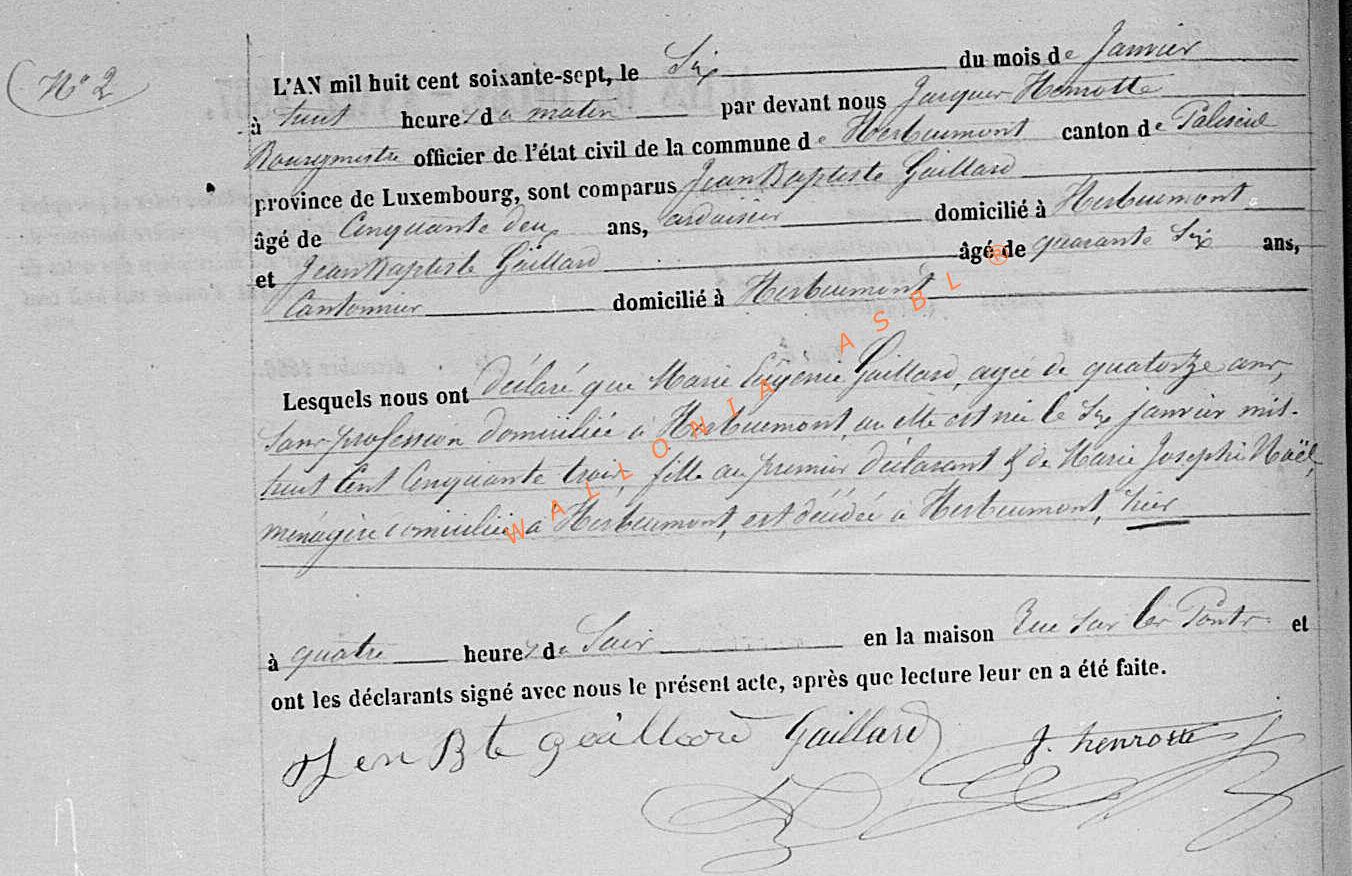 N° 2
L'AN mil huit cent soixante-sept, le Six du mois de Janvier
à huit heures du matin par devant nous Jacques Henrotte
Bourgmestre officier de l'état civil de la commune de Herbeumont canton de Paliseul
province de Luxembourg, sont comparus Jean Baptiste Gaillard
âgé de Cinquante deux ans, ardoisier domicilié à Herbeumont
et Jean Baptiste Gaillard âgé de quarante Six ans,
Cantonnier domicilié à Herbeumont
Lesquels nous ont déclaré que Marie Eugénie Gaillard, agée de quatorze ans,
sans profession domiciliée à Herbeumont, où elle est née le Six janvier mil-
huit Cent Cinquante trois, fille au premier déclarant & de Marie Josephe Noël,
ménagère domiciliée à Herbeumont, est décédée à Herbeumont, hier
à quatre heures du Soir en la maison Rue Sur les Ponts et
ont les déclarants signé avec nous le présent acte, après que lecture leur en a été faite.
J en Bte gaillard Gaillard J. henrotte
WALLONIA ASBL ®